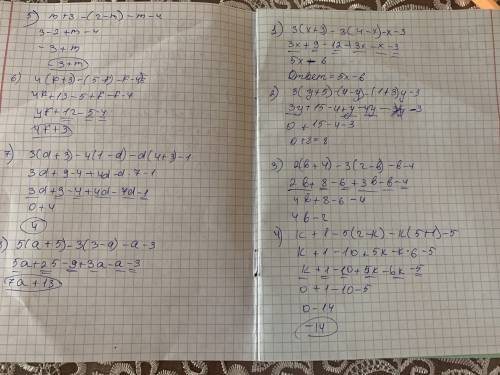 5) m+3-(2-m)-m-4
3-2+m-4
-3+m
(3+m)
4(k+3)-(5-k)-k-4
4k+12-5-4
4k+3
7) 3(d+3)-4(1-d)-d(4+3)-1
3d+9-4+4d-d·7-1
3d+9-4+4d-7d-1
0+4
4
5(a+5)-3(3-a)-a-3
5a+25-9+3a-a-3
7a+13
1) 3(x+3)-3(4-x)-x-3
3x+9-12+3x-x-3
5x-6
Ответ=5x-6
3(y+5)-(4-y)-(1+3)y-3
3y+15-4+y-4y-3
0+15-4-3
0+8=8
3) 2(b+4)-3(2-b)-b-4
2b+8-6+3b-b-4
4b+8-6-4
4b-2
4) k+1-5(2-k)-k(5+1)-5
k+1-10+5k-k·6-5
k+1-10+5k-6k-5
0+1-10-5
0-14
-14